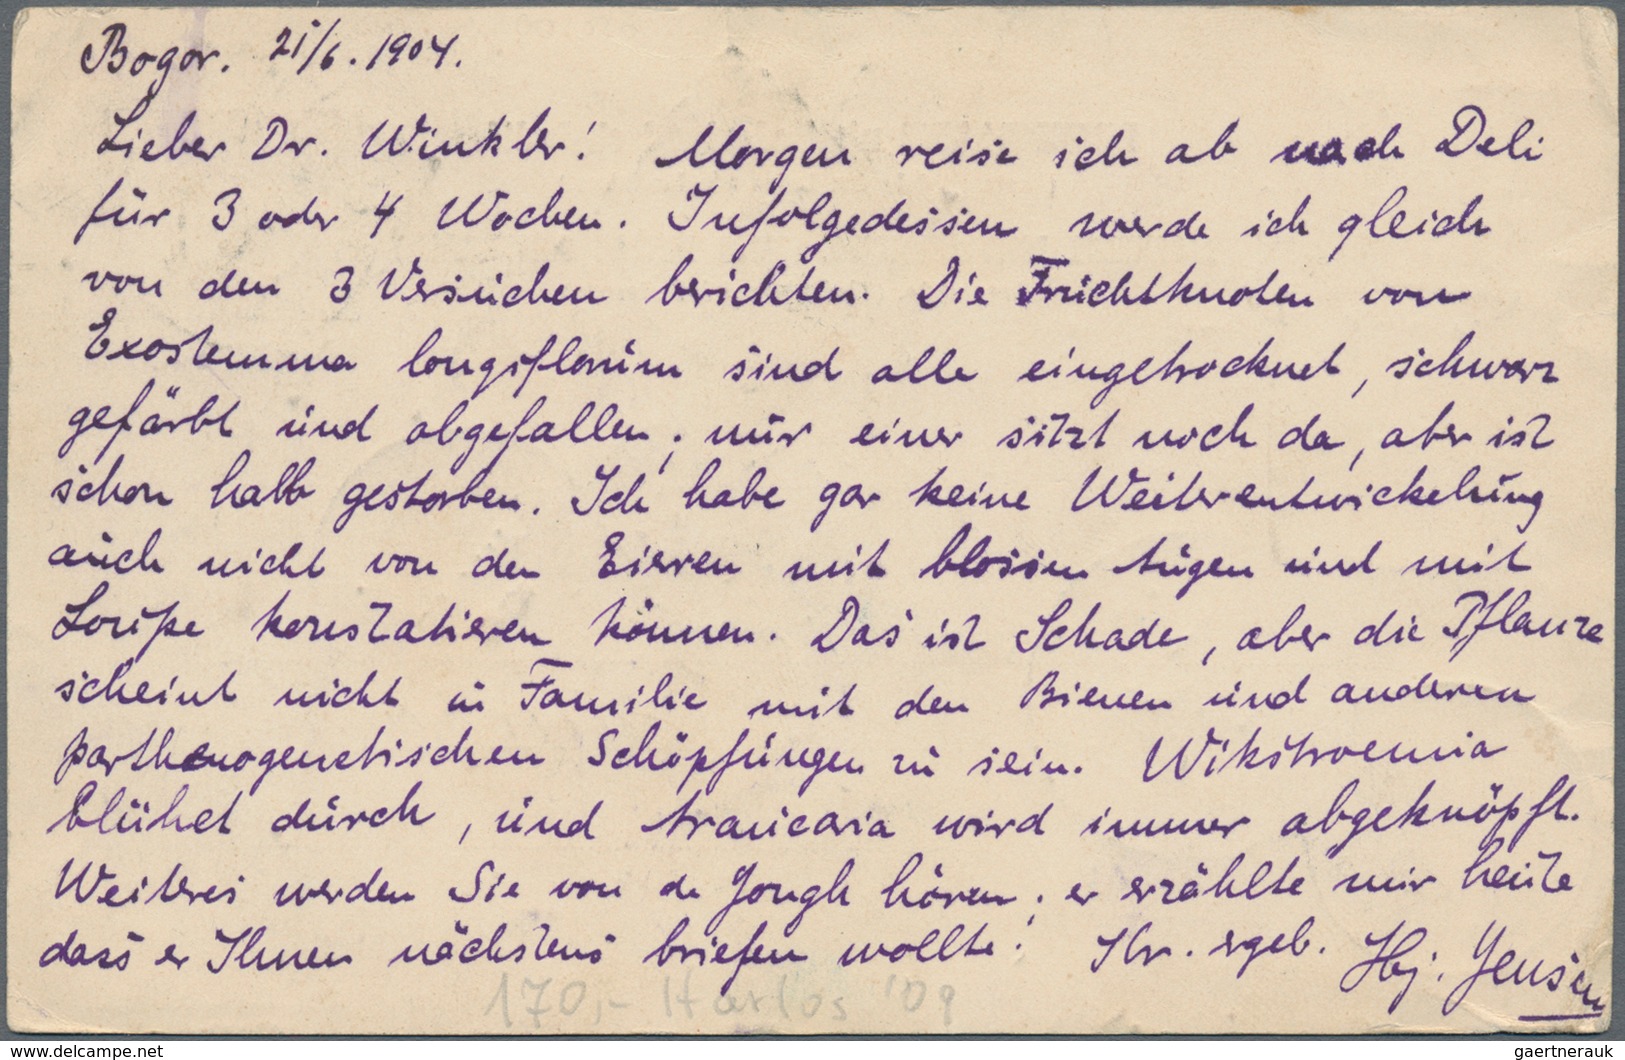 Bogor. 21/6. 1904.
Lieber Dr. Winkler! Morgen reise ich ab nach Deli
für 3 oder 4 Wochen. Infolgedessen werde ich gleich
von den 3 Versuchen berichten. Die Fruchtknoten von
Exostemma longiflorum sind alle eingetrocknet, schwarz
gefärbt und abgefallen; nur einer sitzt noch da, aber ist
schon halb gestorben. Ich habe gar keine Weiterentwickelung
auch nicht von den Eieren mit blossen Augen und mit
Loupe konstatieren können. Das ist Schade, aber die Pflanze
scheint nicht in Familie mit den Bienen und anderen
parthenogenetischen Schöpfungen zu sein. Wikstroemia
blühet durch, und Araucaria wird immer abgeknöpft.
Weiteres werden Sie von de Jongh hören; er erzählte mir heute
dass er Ihnen nächstens briefen wollte! Ihr. ergeb. Hj. Jensen
170,- Harlos '09
www.delcampe.net
gaertnerauk